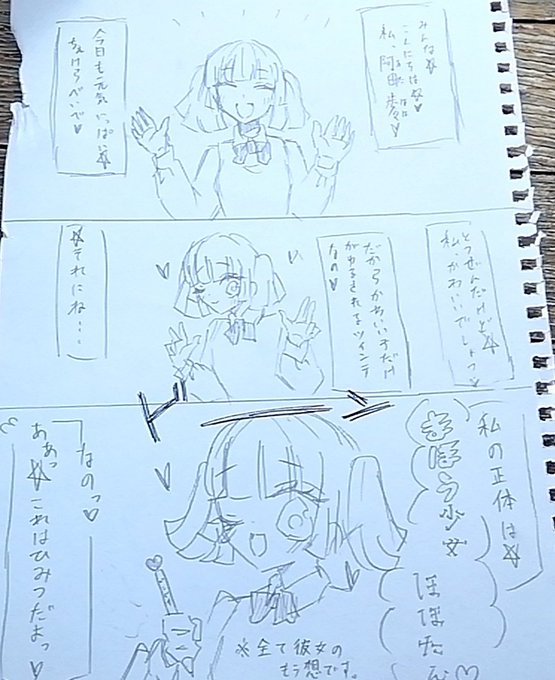 みんな☆
こんにちは☆♥
私、阿田 歩々♥
今日も元気いっぱい☆
とつぜんだけど☆
私、かわいいでしょっ♥
だからかわいい子だけ
がゆるされるツインテ
なの♥
☆それにね…
ドーン
私の正体は☆
まほう少女
ほほたん♡
なのっ♥
ああっ☆これはひみつだよっ♥
※全て彼女の
もう想です。